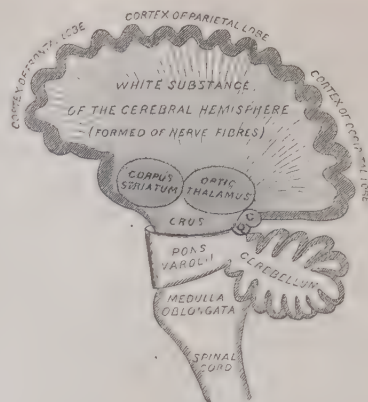 CORTEX OF FRONTAL LOBE
CORTEX OF PARIETAL LOBE
CORTEX OF OCCIPITAL LOBE
WHITE SUBSTANCE
OF THE CEREBRAL HEMISPHERE
(FORMED OF NERVE FIBRES)
CORPUS
STRIATUM
OPTIC
THALAMUS
CRUS
PONS
VAROLII
CEREBELLUM
MEDULLA
OBLONGATA
SPINAL
CORD